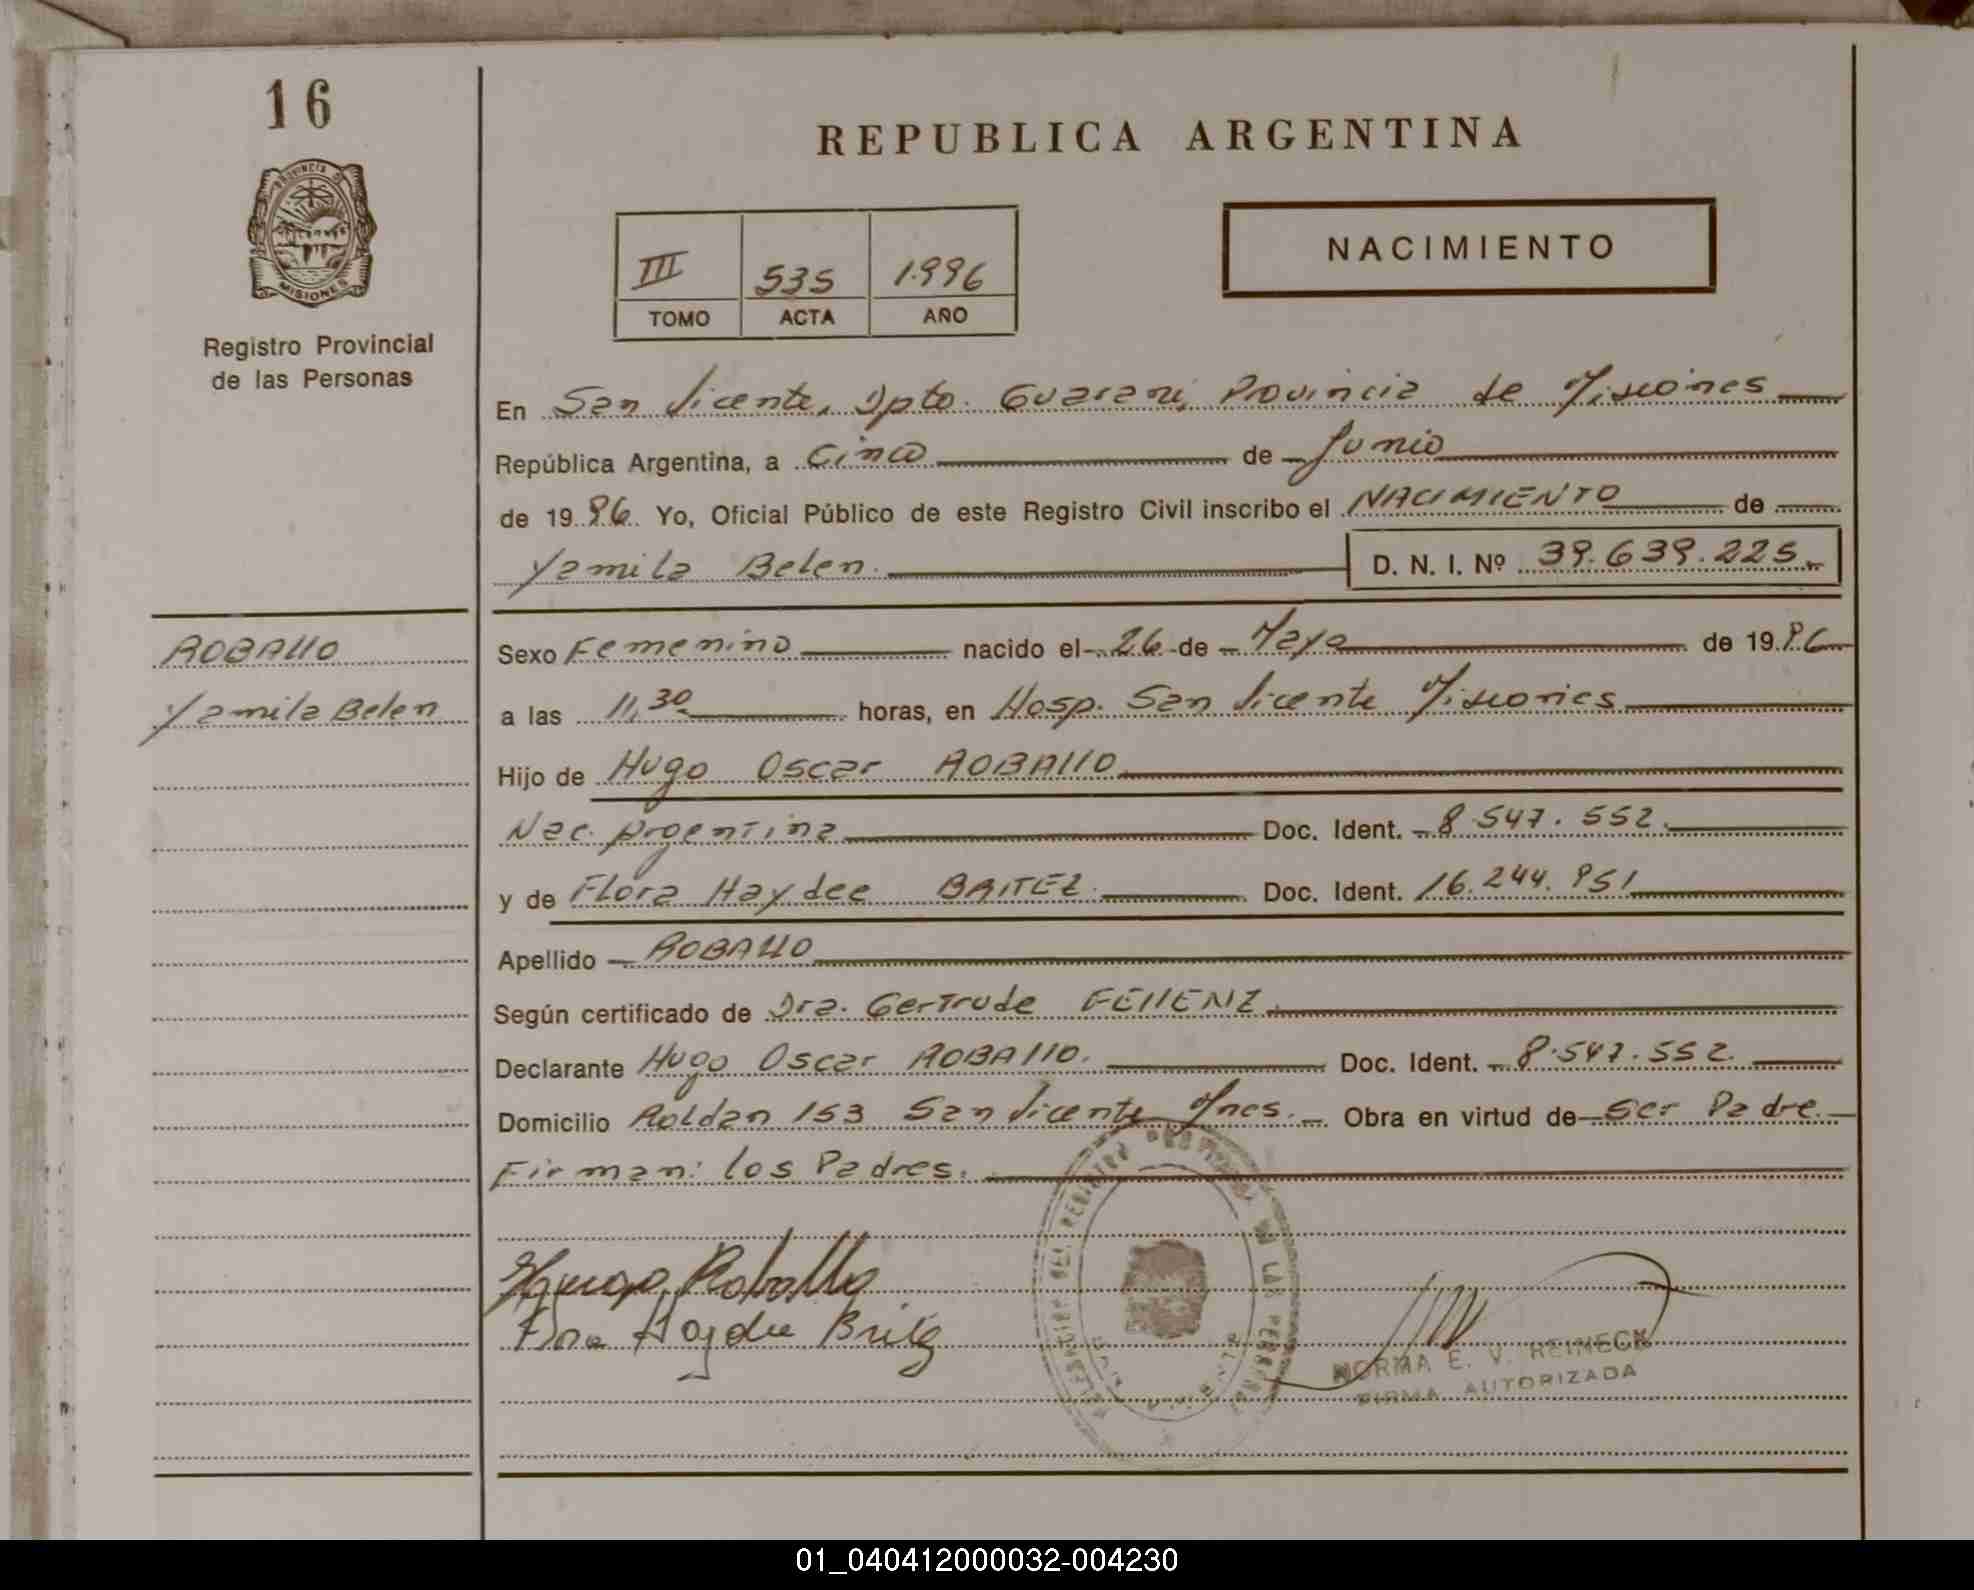 16
PROVINCIA DE
MISIONES
Registro Provincial
de las Personas
REPUBLICA ARGENTINA
III 535 1.996
TOMO ACTA AÑO
NACIMIENTO
En San Vicente, Dpto. Guarani, Provincia de Misiones
República Argentina, a Cinco de Junio
de 1996 Yo, Oficial Público de este Registro Civil inscribo el NACIMIENTO de
Yamila Belen. D. N. I. Nº 39.639.225.
ROBALLO
Yamila Belen
Sexo Femenino nacido el 26 de Mayo de 1996
a las 11,30 horas, en Hosp. San Vicente Misiones
Hijo de Hugo Oscar ROBALLO
Nac. Argentina Doc. Ident. 8.547.552.
y de Flora Haydee BRITEZ. Doc. Ident. 16.244.951
Apellido ROBALLO
Según certificado de Dra. Gertrude FELLENZ.
Declarante Hugo Oscar ROBALLO. Doc. Ident. 8.547.552.
Domicilio Roldan 153 San Vicente Mnes. Obra en virtud de Ser Padre.
Firman: los Padres.
Hugo Roballo
Flora Haydee Britez
NORMA E. V. REINECK
FIRMA AUTORIZADA
01_040412000032-004230